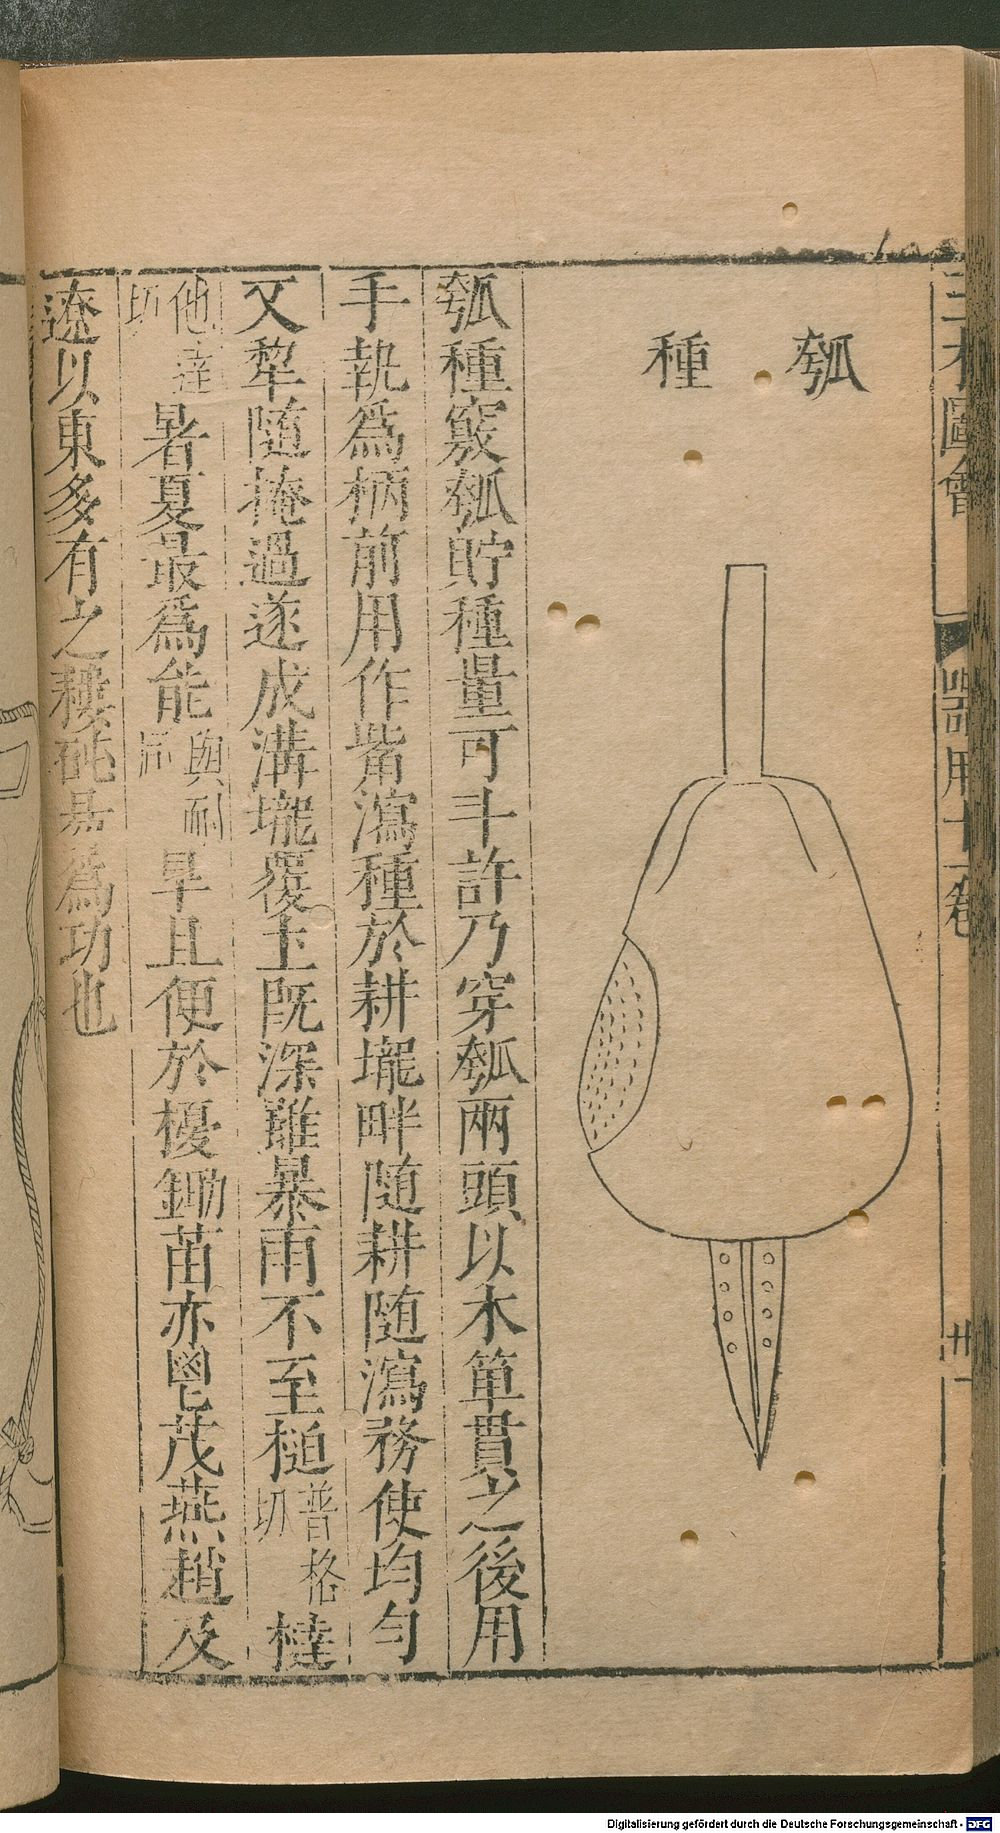 三才圖會
器用十一卷
卅一
瓠種
瓠種竅瓠貯種量可斗許乃穿瓠兩頭以木簞貫之後用
手執爲柄前用作觜瀉種於耕壠畔随耕随瀉務使均勻
又犂随掩過遂成溝壠覆土既深雖暴雨不至搥普格切㩉
他達切暑夏最爲能與耐同旱且便於擾鋤苗亦鬯茂燕趙及
遼以東多有之耬砘易爲功也
Digitalisierung gefördert durch die Deutsche Forschungsgemeinschaft - DFG